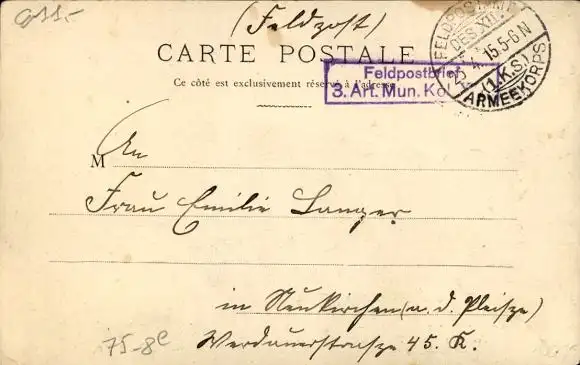 (Feldpost)
CARTE POSTALE
Ce côté est exclusivement réservé à l'adresse
Feldpostbrief
3. Art. Mun. Ko
FELDPOSTAMT
DES XII.
4. 15. 5-6 N
(1.K.S.)
ARMEEKORPS
M An
Frau Emilie Langer
in Neukirchen (a. d. Pleisze)
Werdauerstrasze 45. K.
75-8e